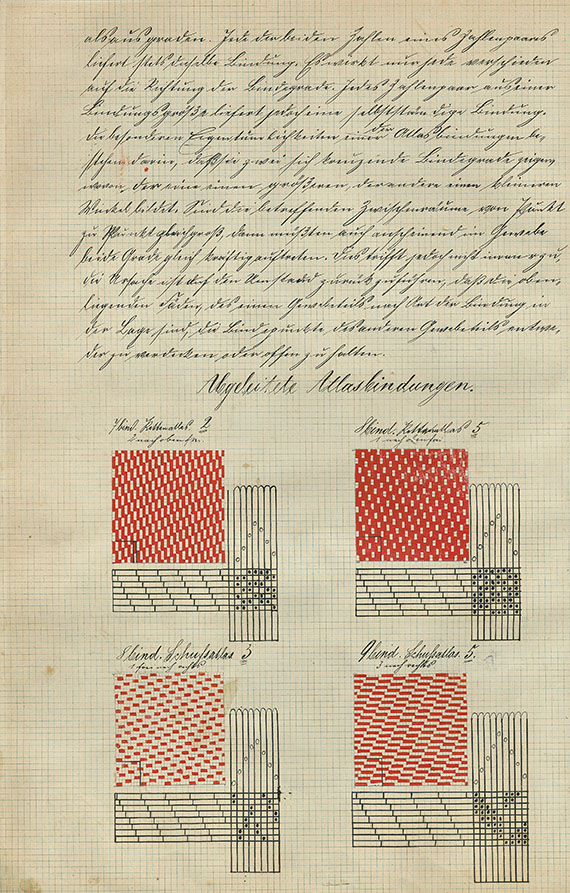 als aus graden. Jede der beiden Zahlen eines Zahlenpaares
liefert stets dieselbe Bindung. Es wirkt nur jede verschieden
auf die Richtung der Bindegrade. Jedes Zahlenpaar aus einer
Bindungsgröße liefert jedoch eine selbstständige Bindung.
Die besonderen Eigentümlichkeiten einer der Atlasbindungen be-
stehen darin, daß sie zwei sich kreuzende Bindegrade zeigen,
wovon der eine einen größeren, der andere einen kleineren
Winkel bildet. Sind die betreffenden Zwischenräume von Punkt
zu Punkt gleich groß, dann müßten auch anscheinend im Gewebe
beide Grade gleich kräftig auftreten. Dies trifft jedoch nicht immer zu,
die Ursache ist auf den Umstand zurück zu führen, daß die oben-
liegenden Fäden, des einen Gewebeteils nach Art der Bindung in
der Lage sind, die Bindepunkte des anderen Gewebeteils entwe-
der zu verdecken oder offen zu halten.
Abgeleitete Atlasbindungen.
7bind. Kettenatlas 2
8bind. Kettenatlas 5
8bind. Schußatlas 3
1 frei nach rechts
9bind. Schußatlas. 5.
3 nach rechts